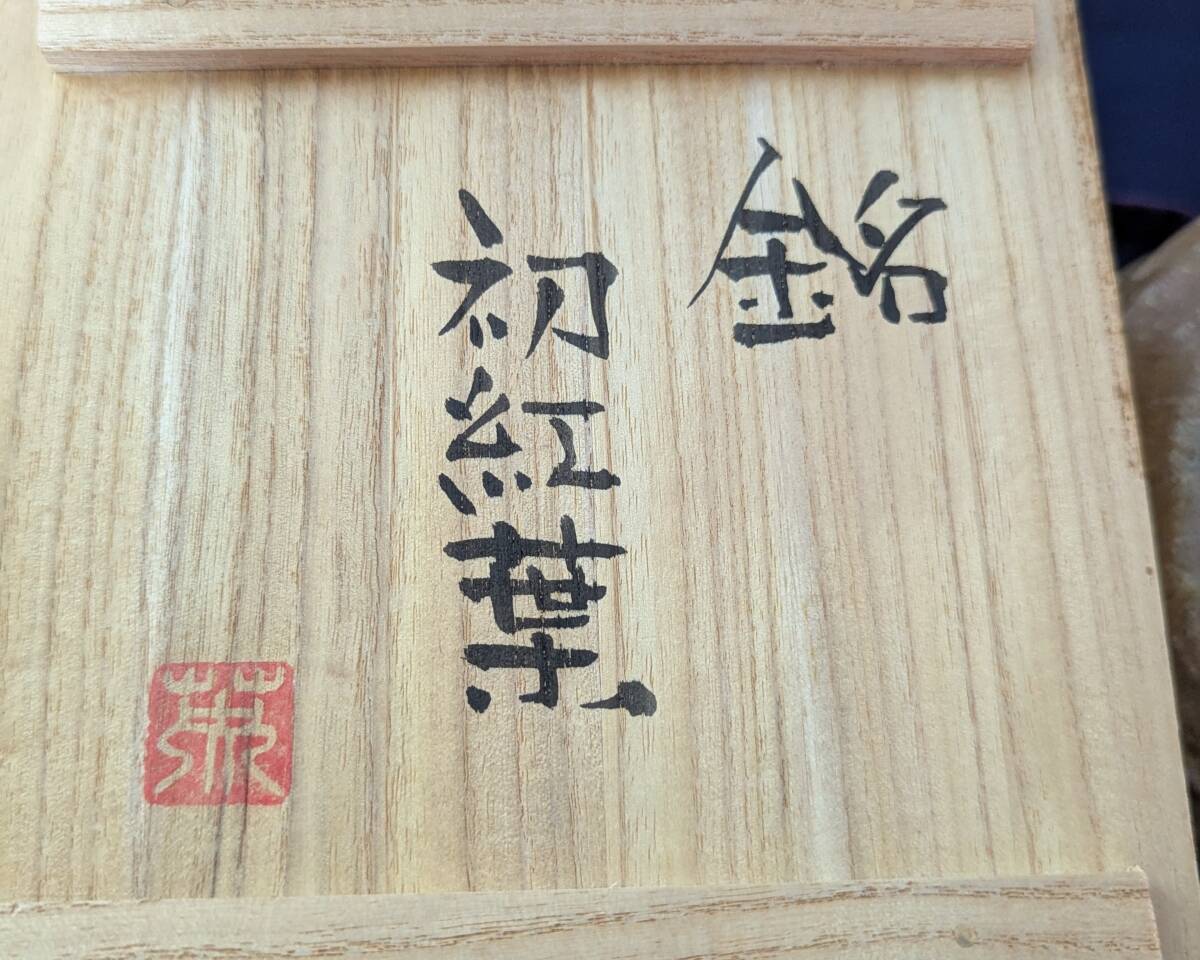 銘
初紅葉